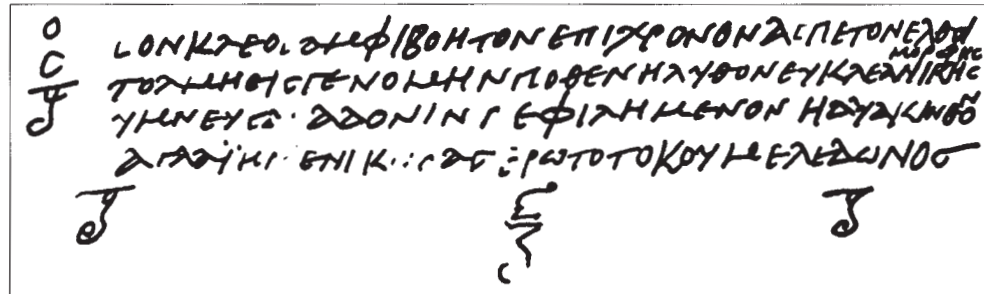 ΟΝΚΛΕΟ.ΑΜΦΙΒΟΗΤΟΝΕΠΙΧΡΟΝΟΝΟΝΑϹΠΕΤΟΝΕΛΘΟΙ
ΜΟΡΦΗϹ
ΤΟΛΜΗΕΙϹΓΕΝΟΜΗΝΠΟΘΕΝΗΛΥΘΟΝΕΥΚΛΕΑΝΙΚΗϹ
ΥΜΝΕΥϹΑΙ·ΑΔΟΝΙΝΠΕΦΙΛΗΜΕΝΟΝΗΫΑΚΙΝΘΟΝ
ΑΓΛΑΪΗϹ·ΕΝΙΚ ΡΩΤΟΤΟΚΟΥΜΕΛΕΔΩΝΟϹ